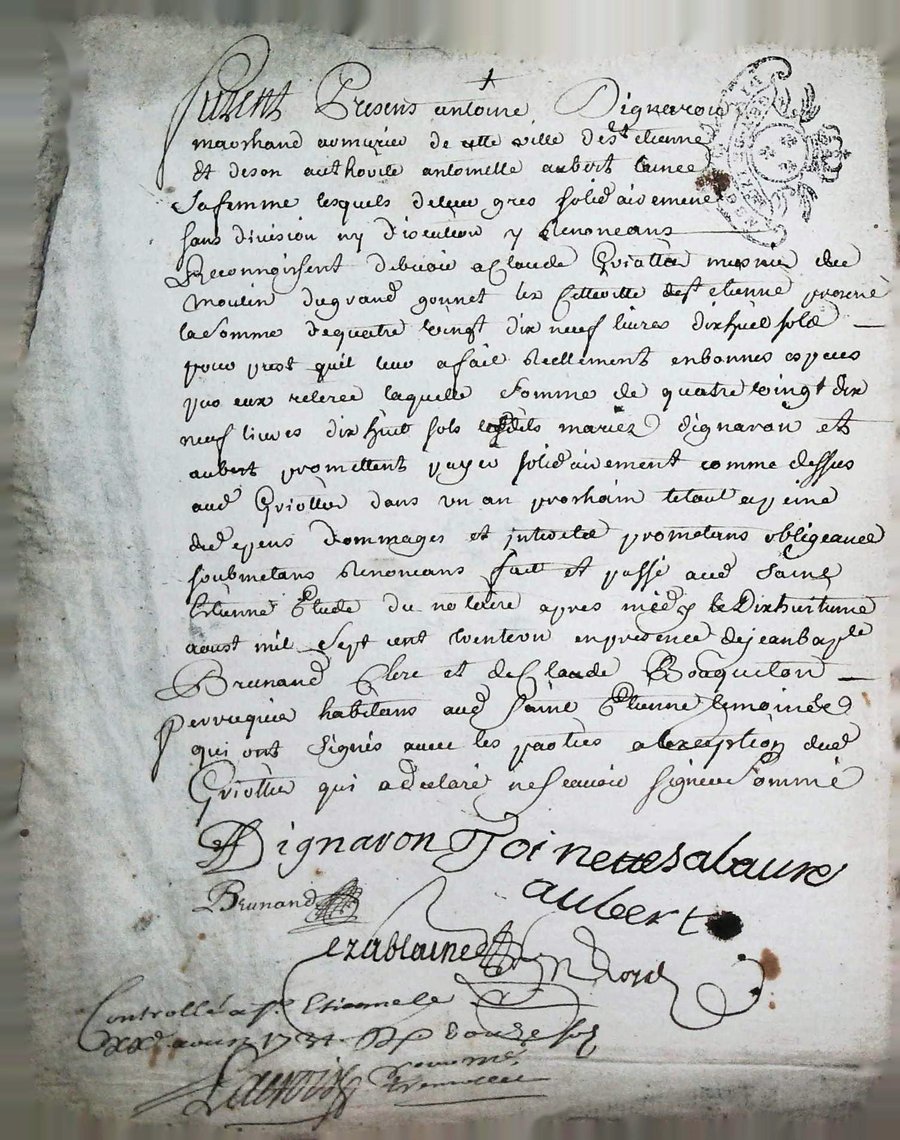 furent Presens antoine Dignaron
marchand armurier de cette ville de st etienne
et de son authorité antoinette aubert
sa femme lesquels de leur gré solidairement
sans division ny discution y Renonceans
Reconnoissent debvoir a Claude Griottier
moulin du grand gonnet lez cette ville de st etienne present
la somme de quatre vingt dix neuf livres dix huit sols
pour prest quil leur a fait Reellement en bonnes especes
par eux retirée laquelle somme de quatre vingt dix
neuf livres dix huit sols lesdits mariez dignaron et
aubert promettent payer solidairement comme dessus
aud Griottier dans un an prochain le tout a peine
de depens dommages et interets prometans obligeance
soubmetans Renonceans fait et passé aud Saint
Etienne Etude du notaire apres midy le Dixhuitieme
aoust mil sept cent trente un en presence de jean bapte
Brunand Clerc et de Claude
Perruquier habitans aud Saint Etienne temoins
qui ont signés avec les parties a lexeption dud
Griottier qui a declaré ne scavoir signer sommé
Dignaron Toinette
aubert
Brunand
Controllé a st Etienne le
aoust 1731 douze sols